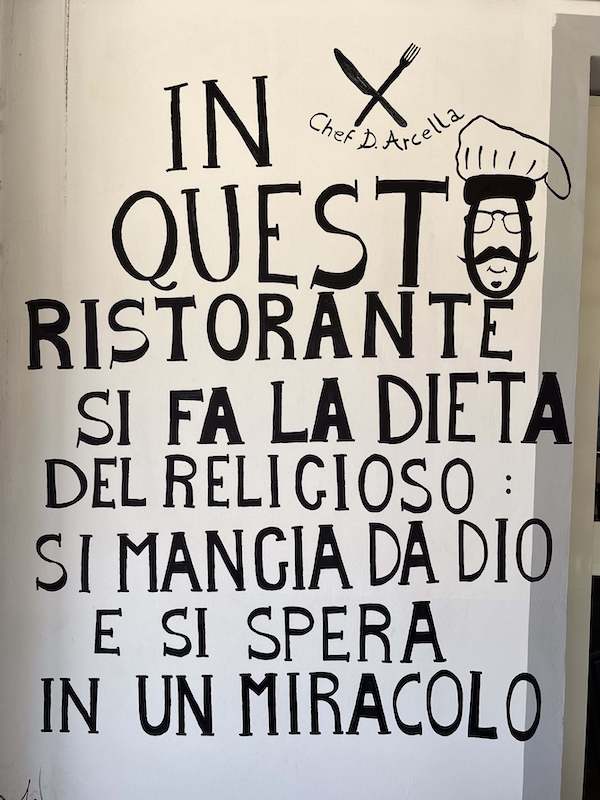 Chef D. Arcella
IN
QUESTO
RISTORANTE
SI FA LA DIETA
DEL RELIGIOSO :
SI MANGIA DA DIO
E SI SPERA
IN UN MIRACOLO